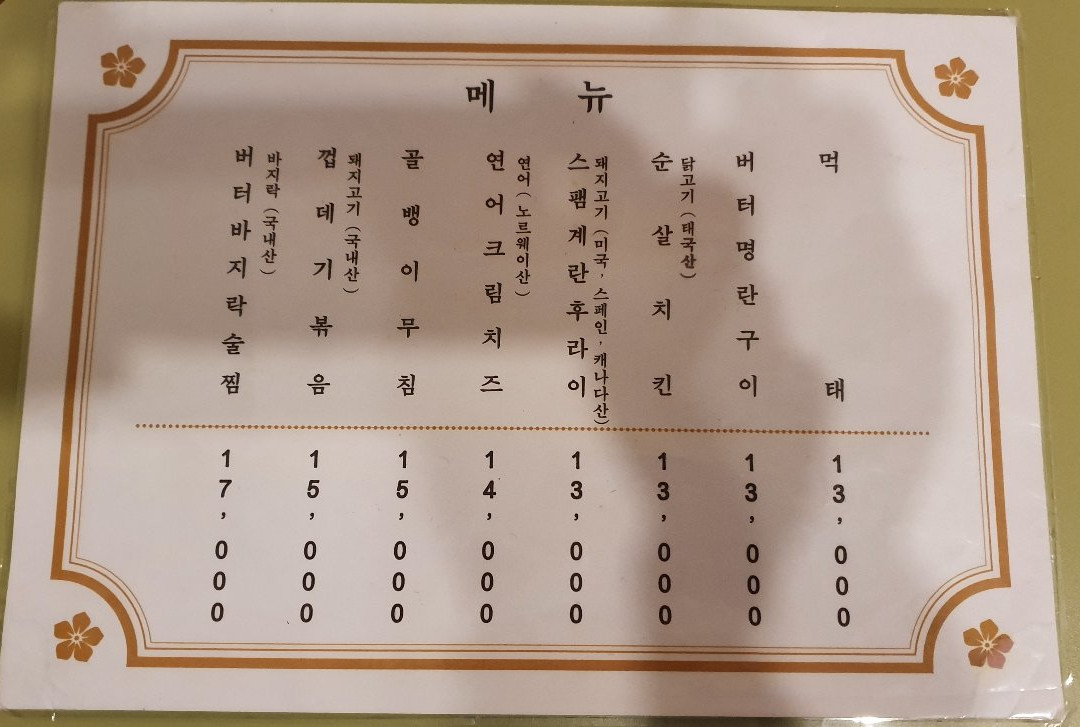 메 뉴
먹태
13,000
버터명란구이
13,000
닭고기 (태국산)
순살치킨
13,000
돼지고기 (미국, 스페인, 캐나다산)
스팸계란후라이
13,000
연어 (노르웨이산)
연어크림치즈
14,000
골뱅이무침
15,000
돼지고기 (국내산)
껍데기볶음
15,000
바지락 (국내산)
버터바지락술찜
17,000